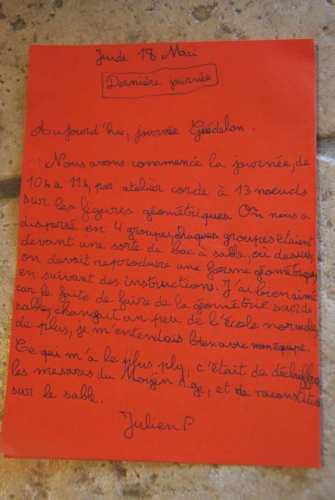 Jeudi 18 Mai
Dernière journée
Aujourd'hui, journée Guédelon.
Nous avons commencé la journée, de
10h à 11h, par atelier corde à 13 noeuds
sur les figures géométriques. On nous a
dispersé en 4 groupes, chaques groupes étaient
devant une sorte de bac à sable, où dessus,
on devait reproduire une forme géométrique
en suivant des instructions. J'ai bien aimé
car le faite de faire de la géométrie sur du
sable, changait un peu de l'école normale
de plus, je m'entendais bien avec mon équipe.
Ce qui m'a le plus plu, c'était de
les mesures du Moyen Age, et de
sur le sable.
Julien P